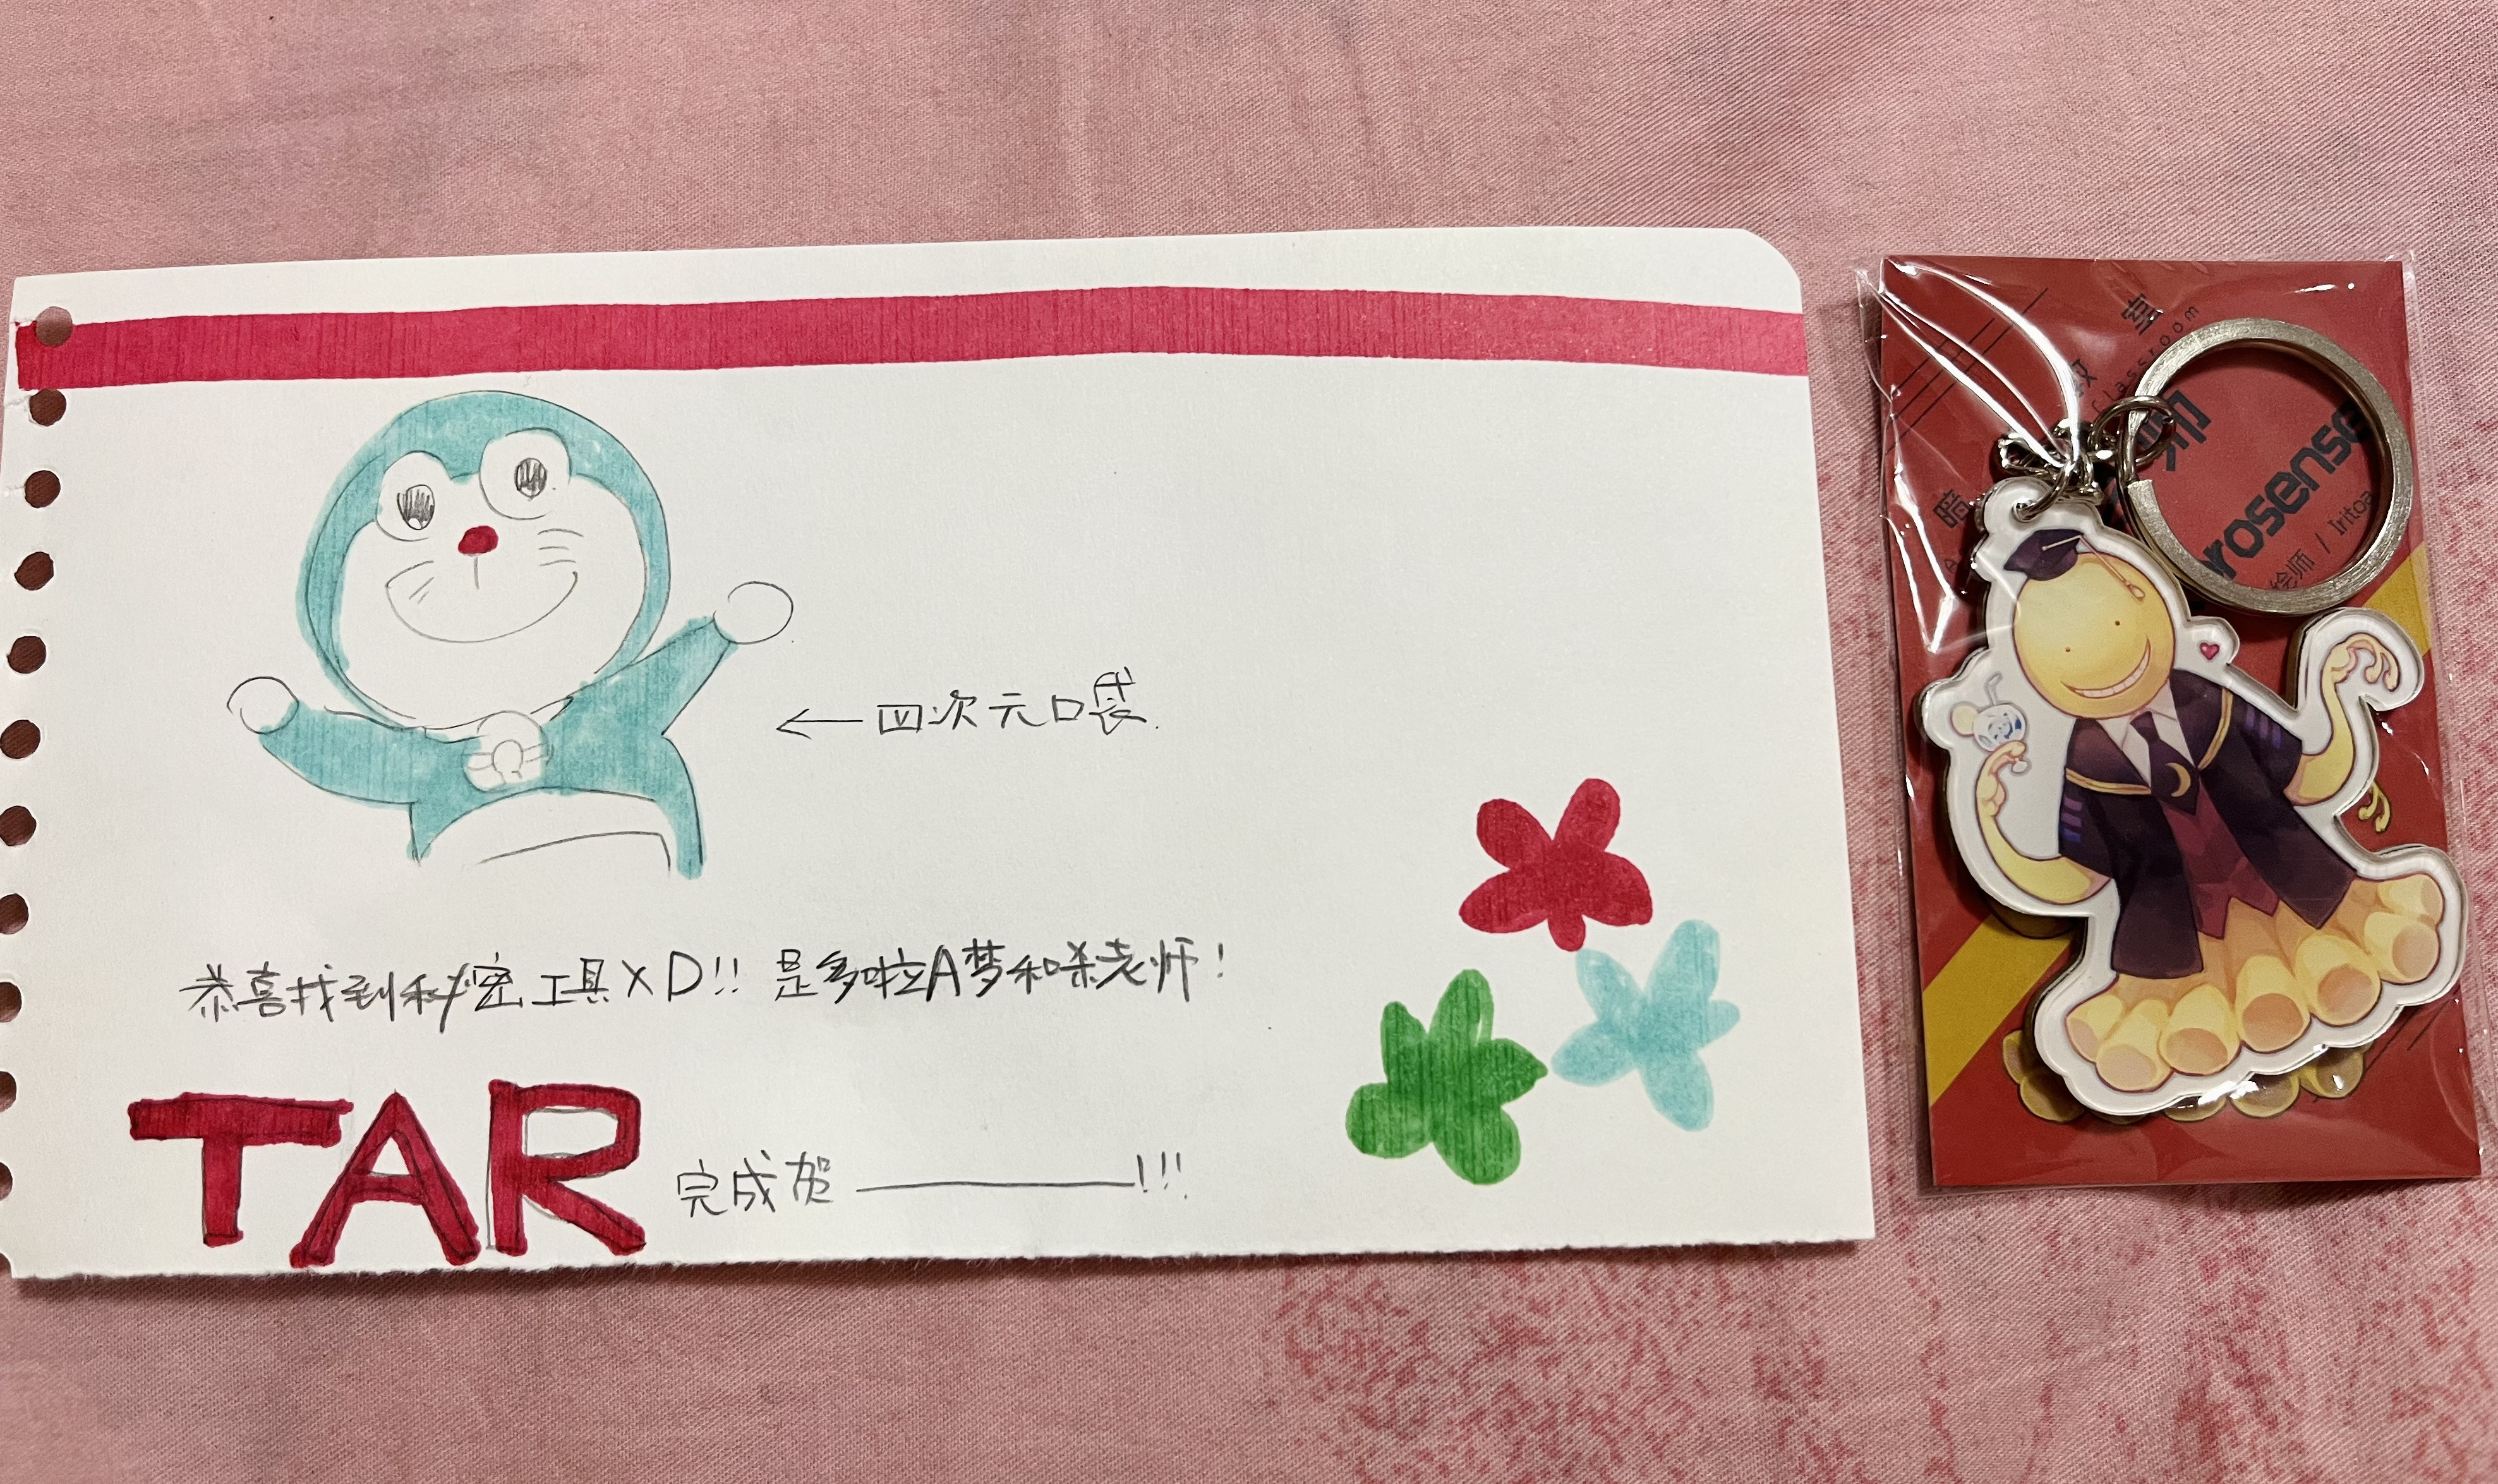 ← 四次元口袋
恭喜找到秘密工具XD!! 是多啦A梦和杀老师!
TAR 完成贺————!!!
暗
教
室
Classroom
rosense
绘师 / Iritoa